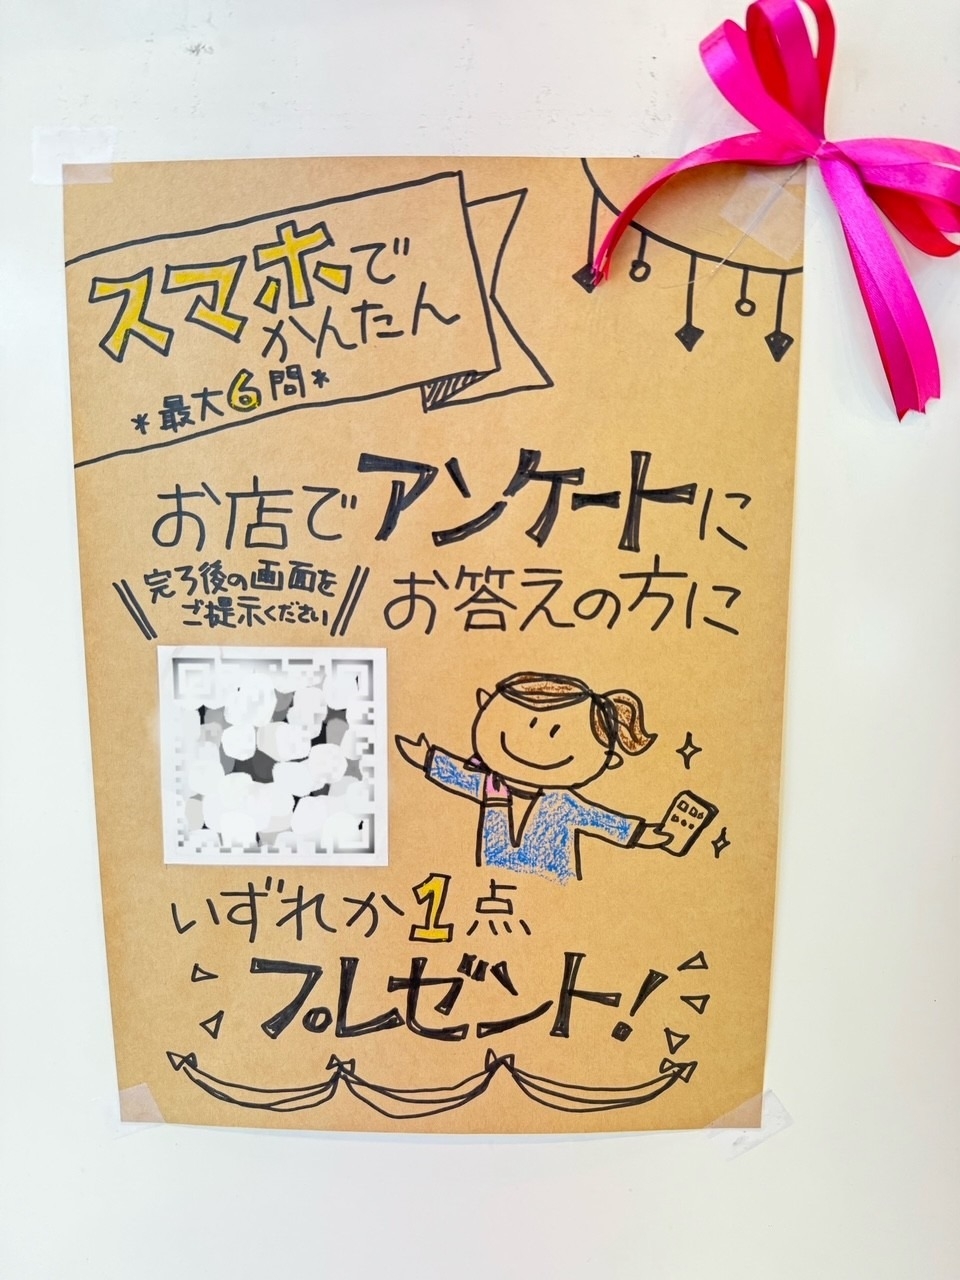 スマホで
かんたん
*最大6問*
お店でアンケートに
お答えの方に
\\完了後の画面を
ご提示ください//
いずれか1点
プレゼント!